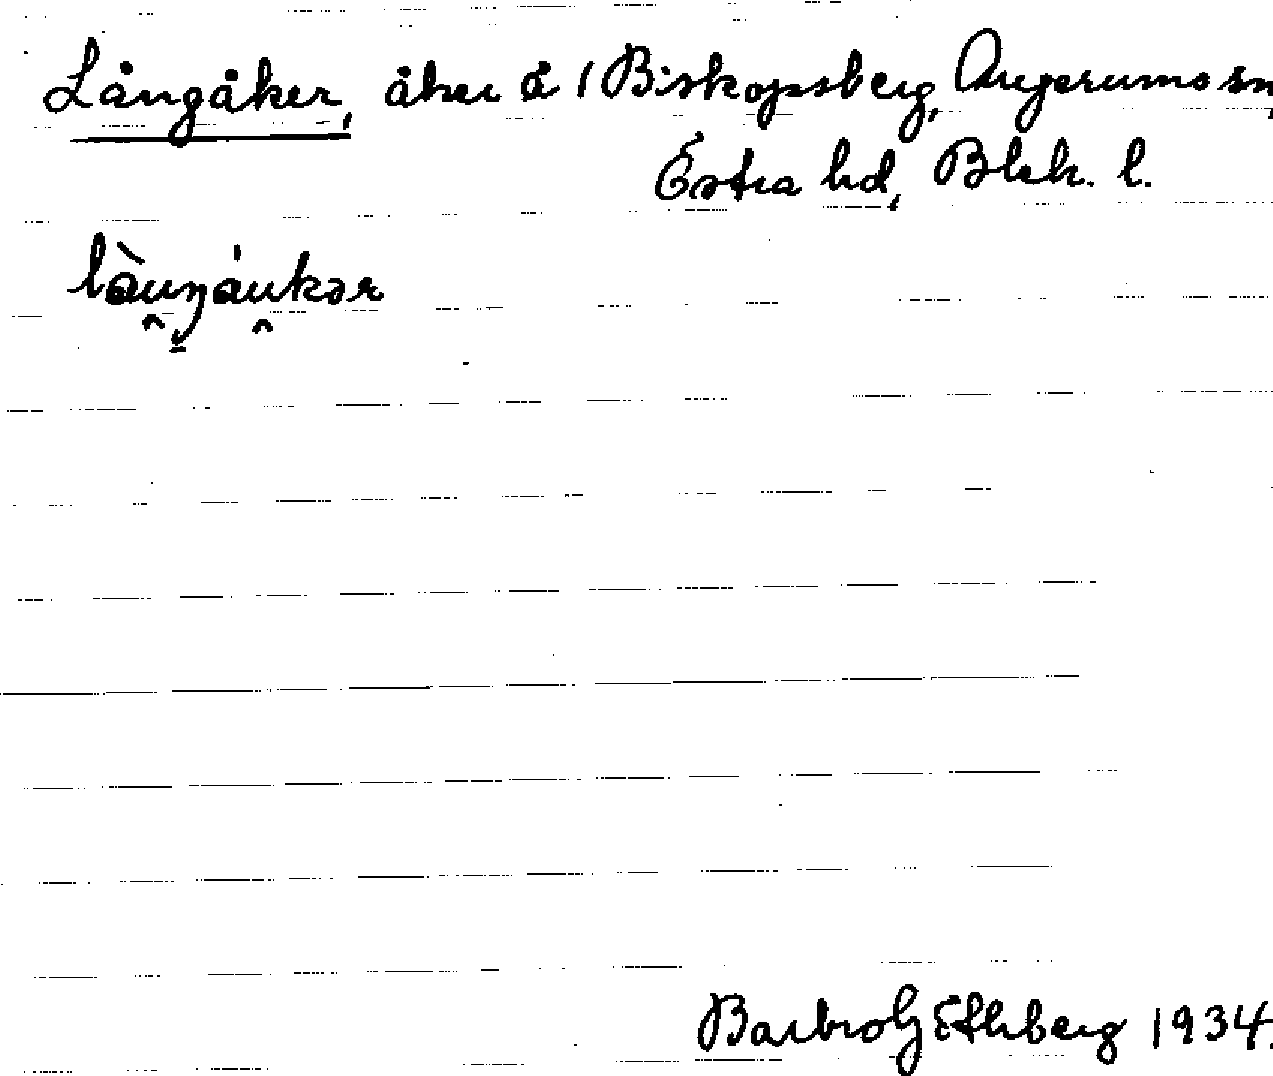 Långåker, åker å 1 Biskopsberg, Augerums sn,
Östra hd, Blek. l.
làuŋáukər
Barbro G 1934.